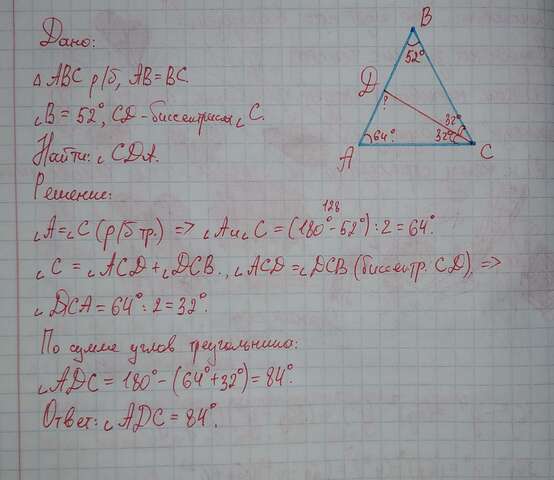 Дано:
△ ABC р/б, AB=BC.
∠B = 52°, CD - биссектрисы ∠C.
Найти: ∠ CDA.
Решение:
128
∠A=∠C (р/б тр.) => ∠A и ∠C = (180°-52°):2=64°.
∠C = ∠ACD+∠DCB., ∠ACD=∠DCB (биссектр. CD), =>
∠DCA=64°:2=32°.
По сумме углов треугольника:
∠ADC = 180° - (64°+32°)=84°.
Ответ: ∠ADC = 84°.
B
52°
D
?
32°
A
64°
32°
C